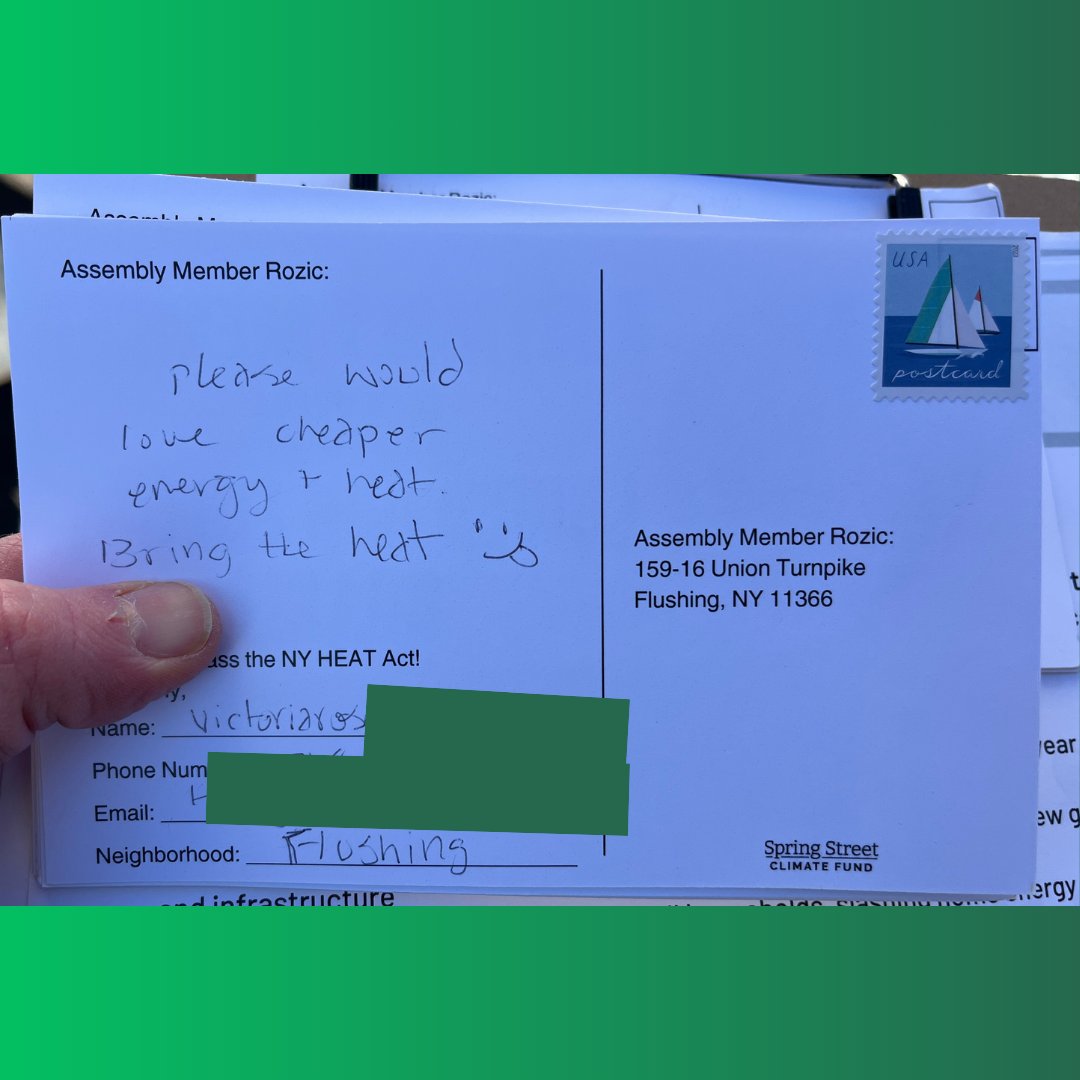 Assembly Member Rozic:
please would
love cheaper
energy + heat.
Bring the heat
ass the NY HEAT Act!
ly,
Name: victoriaros
Phone Num
Email:
Neighborhood: Flushing
USA
postcard
Assembly Member Rozic:
159-16 Union Turnpike
Flushing, NY 11366
Spring Street
CLIMATE FUND
nd infrastructure